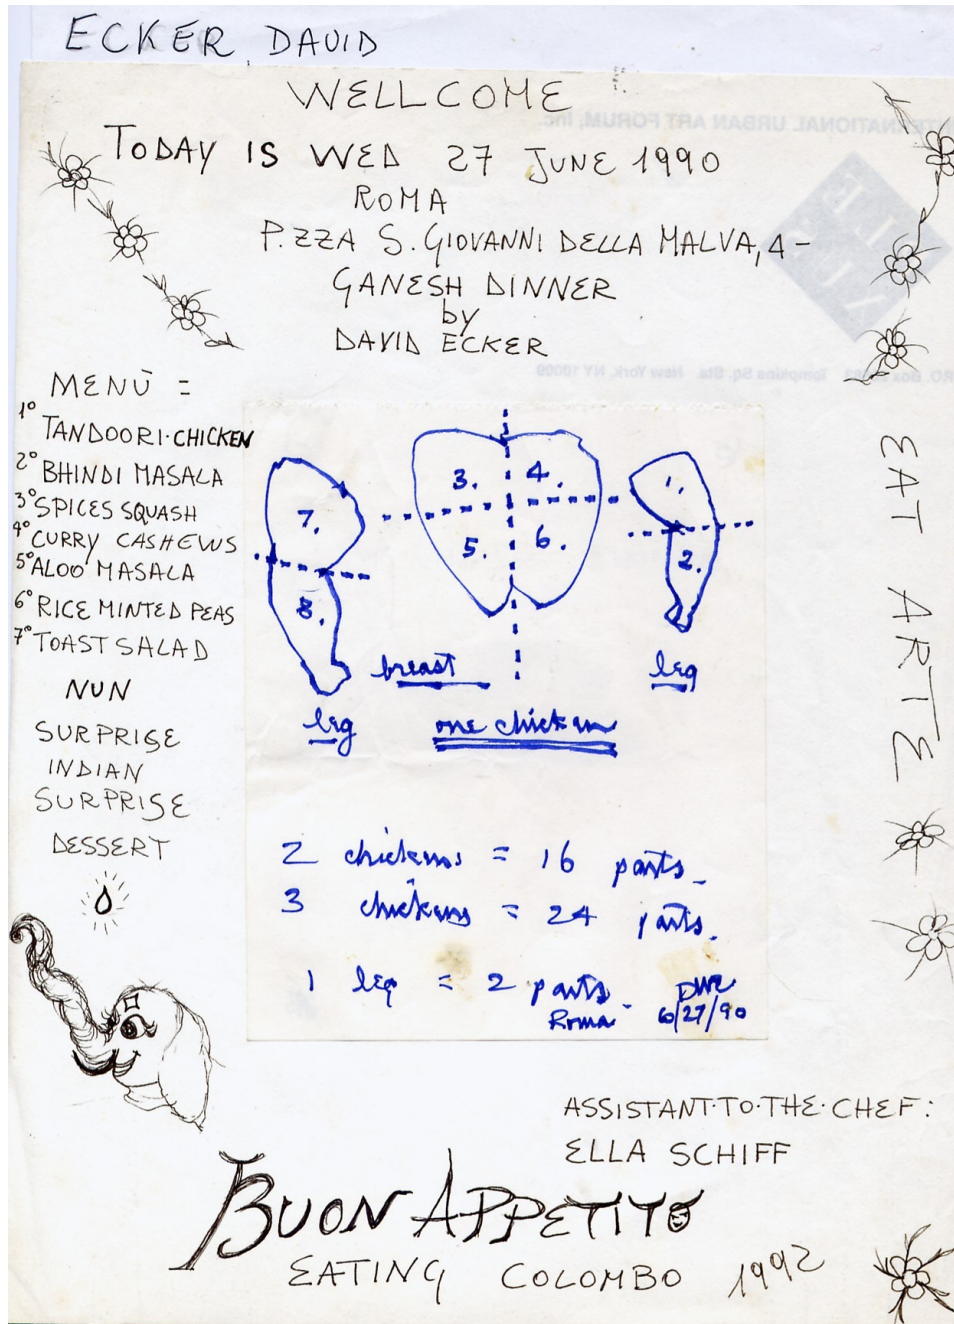 ECKER DAVID
WELLCOME
TODAY IS WED 27 JUNE 1990
ROMA
P.ZZA S. GIOVANNI DELLA MALVA, 4-
GANESH DINNER
by
DAVID ECKER
INTERNATIONAL URBAN ART FORUM, Inc.
Tompkins Sq. Sta. New York, NY 10009
MENÙ =
1° TANDOORI·CHICKEN
2° BHINDI MASALA
3° SPICES SQUASH
4° CURRY CASHEWS
5° ALOO MASALA
6° RICE MINTED PEAS
7° TOAST SALAD
NUN
SURPRISE
INDIAN
SURPRISE
DESSERT
7. 3. 4. 1.
8. 5. 6. 2.
breast
leg
leg
one chicken
2 chickens = 16 parts.
3 chickens = 24 parts.
1 leg = 2 parts.
Roma
6/27/90
EAT ARTE
ASSISTANT·TO·THE·CHEF:
ELLA SCHIFF
BUON APPETITO
EATING COLOMBO 1992